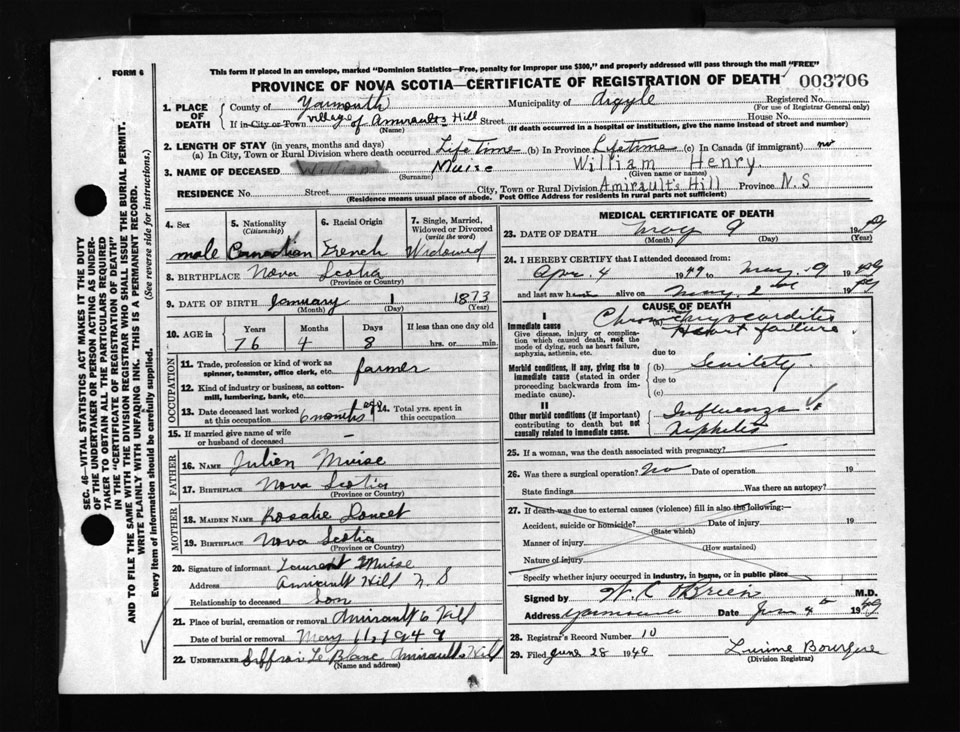 FORM 6
This form if placed in an envelope, marked "Dominion Statistics—Free, penalty for improper use $300," and properly addressed will pass through the mail "FREE"
PROVINCE OF NOVA SCOTIA—CERTIFICATE OF REGISTRATION OF DEATH 003706
1. PLACE OF DEATH County of Yarmouth Municipality of Argyle Registered No.
(For use of Registrar General only)
If in City or Town village of Amirault's Hill Street House No.
(Name) (If death occurred in a hospital or institution, give the name instead of street and number)
2. LENGTH OF STAY (in years, months and days)
(a) In City, Town or Rural Division where death occurred Lifetime (b) In Province Lifetime (c) In Canada (if immigrant) no
3. NAME OF DECEASED William Muise William Henry.
(Surname) (Given name or names)
RESIDENCE No. Street City, Town or Rural Division Amirault's Hill Province N.S
(Residence means usual place of abode. Post Office Address for residents in rural parts not sufficient)
4. Sex 5. Nationality (Citizenship) 6. Racial Origin 7. Single, Married, Widowed or Divorced (write the word)
male Canadian French Widowed
8. BIRTHPLACE Nova Scotia
(Province or Country)
9. DATE OF BIRTH January 1 1873
(Month) (Day) (Year)
10. AGE in Years Months Days If less than one day old
76 4 8 hrs. or min.
OCCUPATION
11. Trade, profession or kind of work as spinner, teamster, office clerk, etc. farmer
12. Kind of industry or business, as cotton-mill, lumbering, bank, etc.
13. Date deceased last worked at this occupation 6 months ago 14. Total yrs. spent in this occupation
15. If married give name of wife or husband of deceased –
FATHER
16. NAME Julien Muise
17. BIRTHPLACE Nova Scotia
(Province or Country)
MOTHER
18. MAIDEN NAME Rosalie Doucet
19. BIRTHPLACE Nova Scotia
(Province or Country)
20. Signature of informant Laurent Muise
Address Amirault Hill N S
Relationship to deceased Son
21. Place of burial, cremation or removal Amirault's Hill
Date of burial or removal May 11, 1949
22. UNDERTAKER Le Blanc Amiraults Hill
(Name and address)
MEDICAL CERTIFICATE OF DEATH
23. DATE OF DEATH May 9 1949
(Month) (Day) (Year)
24. I HEREBY CERTIFY that I attended deceased from:
Apr. 4 1949 to May 9 1949
and last saw him alive on May 2 1949
CAUSE OF DEATH
I
Immediate cause
Give disease, injury or complication which caused death, not the mode of dying, such as heart failure, asphyxia, asthenia, etc.
Chronic Myocarditis
Heart failure
due to
Morbid conditions, if any, giving rise to immediate cause (stated in order proceeding backwards from immediate cause).
(b) Senility
due to
(c)
II
Other morbid conditions (if important) contributing to death but not causally related to immediate cause.
Influenza
25. If a woman, was the death associated with pregnancy?
26. Was there a surgical operation? No Date of operation 19
State findings Was there an autopsy?
27. If death was due to external causes (violence) fill in also the following:—
Accident, suicide or homicide? Date of injury 19
(State which)
Manner of injury
(How sustained)
Nature of injury
Specify whether injury occurred in industry, in home, or in public place
Signed by W. C. O'Brien M.D.
Address Yarmouth Date June 4 1949
28. Registrar's Record Number 10
29. Filed June 28 1949
(Division Registrar)
SEC. 46—VITAL STATISTICS ACT MAKES IT THE DUTY
OF THE UNDERTAKER OR PERSON ACTING AS UNDER-
TAKER TO OBTAIN ALL THE PARTICULARS REQUIRED
IN THE "CERTIFICATE OF REGISTRATION OF DEATH"
AND TO FILE THE SAME WITH THE DIVISION REGISTRAR WHO SHALL ISSUE THE BURIAL PERMIT.
WRITE PLAINLY WITH UNFADING INK. THIS IS A PERMANENT RECORD.
Every item of information should be carefully supplied. (See reverse side for instructions.)